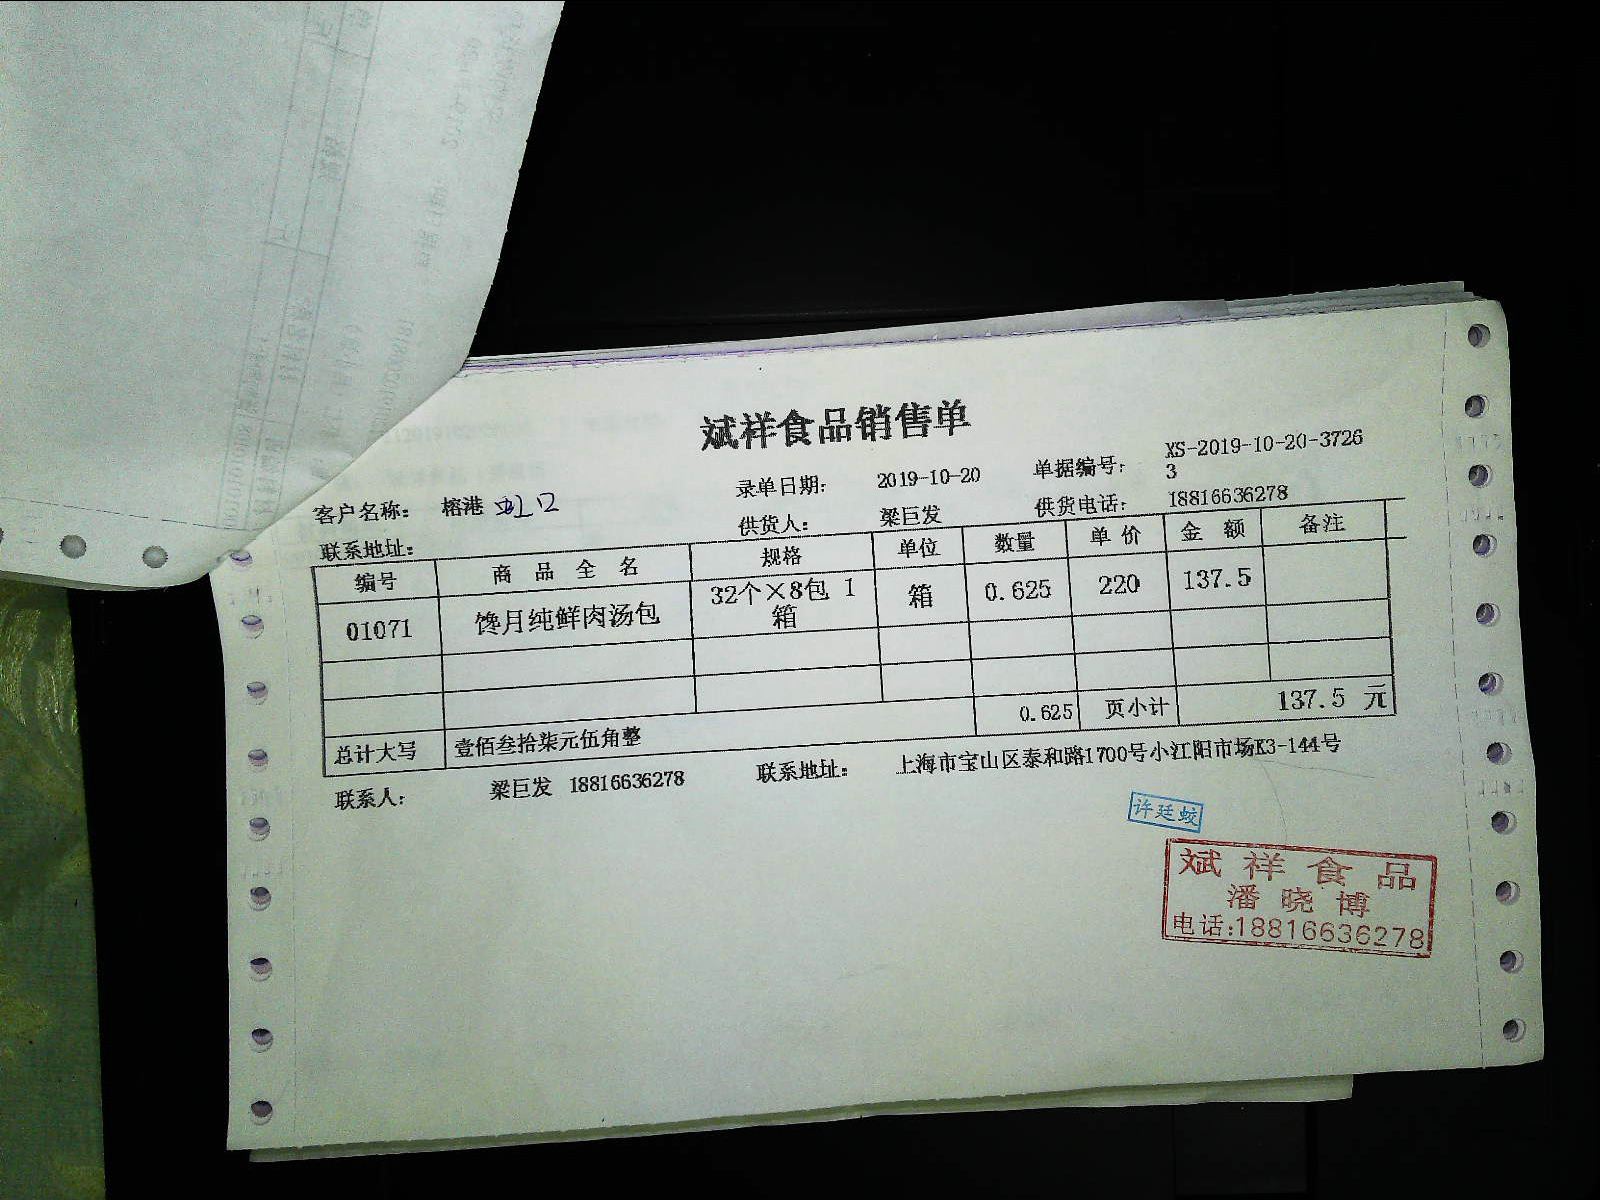 斌祥食品销售单
录单日期： 2019-10-20 单据编号： XS-2019-10-20-3726
3
客户名称： 榕港 虹口 供货人： 梁巨发 供货电话： 18816636278
联系地址：
编号 商品全名 规格 单位 数量 单价 金额 备注
01071 馋月纯鲜肉汤包 32个×8包 1
箱 箱 0.625 220 137.5
0.625 页小计 137.5 元
总计大写 壹佰叁拾柒元伍角整
联系人： 梁巨发 18816636278 联系地址： 上海市宝山区泰和路1700号小江阳市场K3-144号
许廷蛟
斌祥食品
潘晓博
电话:18816636278